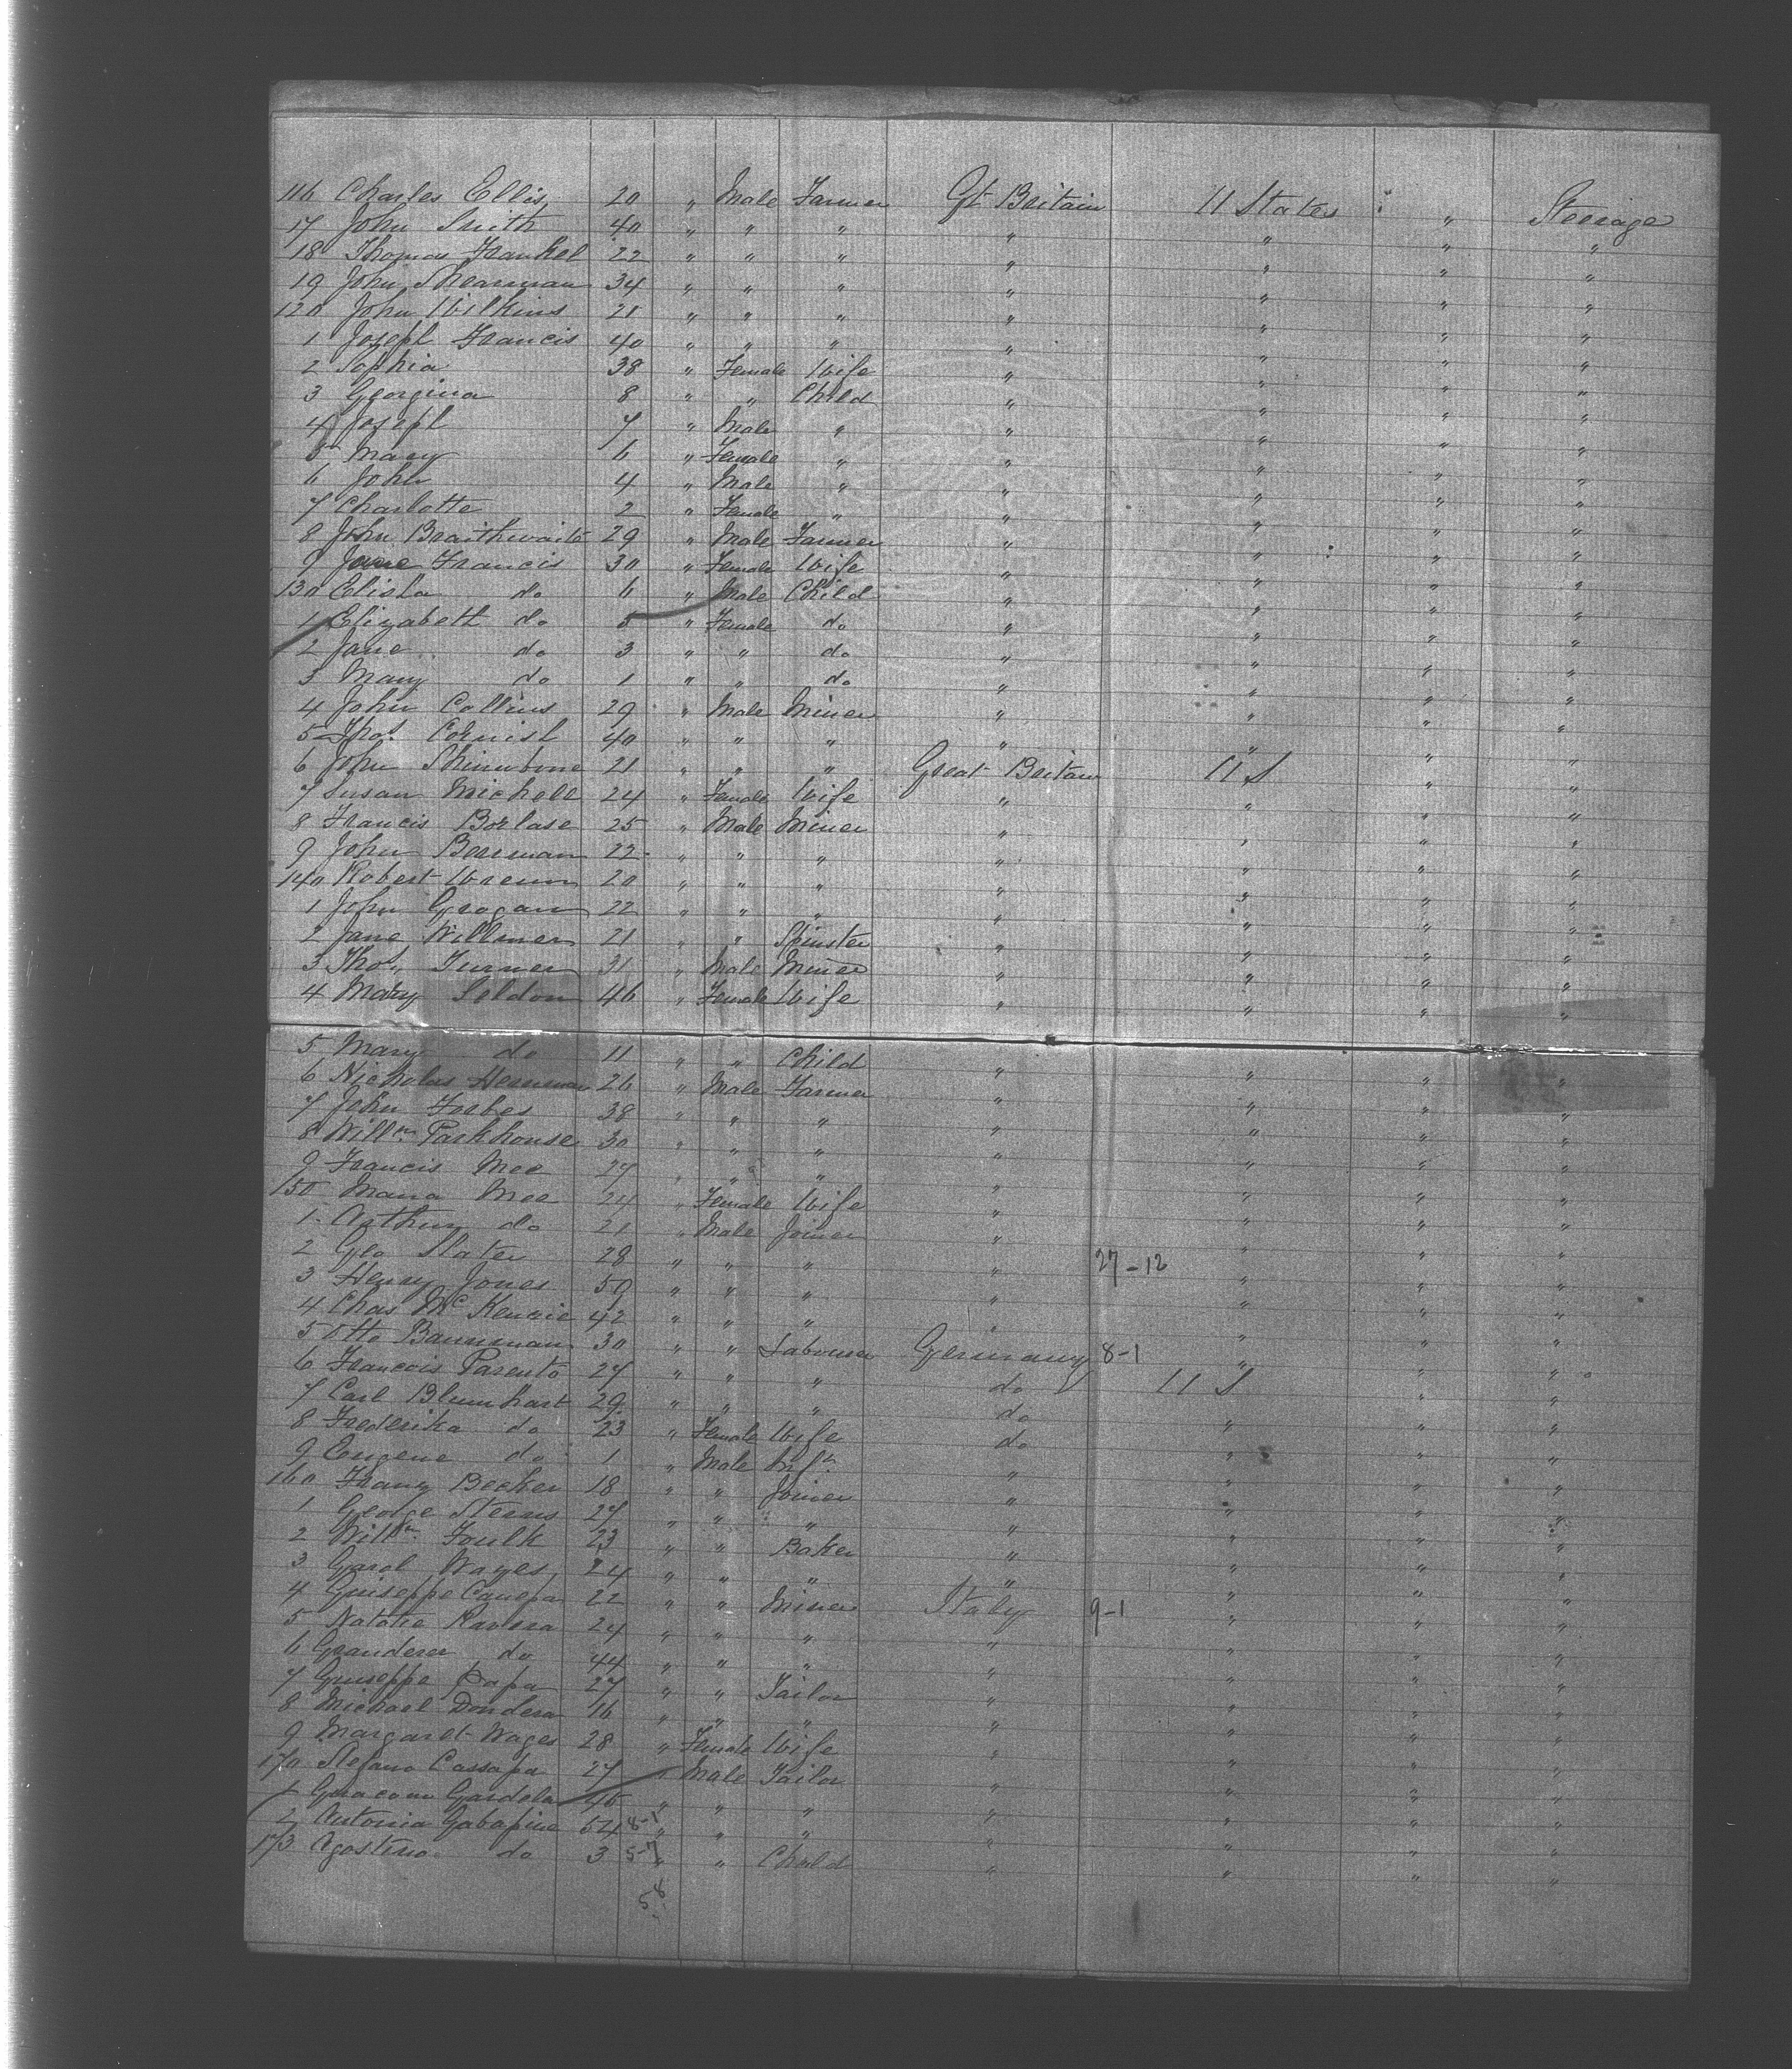 116 Charles Ellis 20 " Male Farmer Gt Britain U States " Steerage
17 John Smith 40 " " " " " " "
18 Thomas Frankel 22 " " " " " " "
19 John Shearman 34 " " " " " " "
120 John Wilkins 21 " " " " " " "
1 Joseph Francis 40 " " " " " " "
2 Sophia 38 " Female Wife " " " "
3 Georgina 8 " " Child " " " "
4 Joseph 7 " Male " " " " "
5 Mary 6 " Female " " " " "
6 John 4 " Male " " " " "
7 Charlotte 2 " Female " " " " "
8 John Braithwaite 29 " Male Farmer " " " "
9 Jane Francis 30 " Female Wife " " " "
130 Elisha do 6 " Male Child " " " "
1 Elizabeth do 5 " Female do " " " "
2 Jane do 3 " " do " " " "
3 Mary do 1 " " do " " " "
4 John Collins 29 " Male Miner " " " "
5 Thos. Cornish 40 " " " " " " "
6 John Shinnbone 21 " " " Great Britain U S " "
7 Susan Michell 24 " Female Wife " " " "
8 Francis Borlase 25 " Male Miner " " " "
9 John Berriman 22 " " " " " " "
140 Robert Wrenn 20 " " " " " " "
1 John Grogan 22 " " " " " " "
2 Jane Willmer 21 " " Spinster " " " "
3 Thos. Turner 31 " Male Miner " " " "
4 Mary Seldon 46 " Female Wife " " " "
5 Mary do 11 " " Child " " " "
6 Nicholas 26 " Male Farmer " " " "
7 John Forbes 38 " " " " " " "
8 Willm Parkhouse 30 " " " " " " "
9 Francis Mee 27 " " " " " " "
150 Maria Mee 24 " Female Wife " " " "
1 Arthur do 21 " Male Joiner " " " "
2 Geo Slater 28 " " " " 27-12 " " "
3 Henry Jones 50 " " " " " " "
4 Chas McKenzie 42 " " " " " " "
5 Otto Bannman 30 " " Labourer Germany 8-1 " " "
6 Francois Parento 27 " " " do U S " "
7 Carl Blumhart 29 " " " do " " "
8 Frederika do 23 " Female Wife do " " "
9 Eugene do 1 " Male Inft " " " "
160 Franz Becker 18 " " Joiner " " " "
1 George Sterns 27 " " " " " " "
2 Willm Foulk 23 " " Baker " " " "
3 Garol Wages 24 " " " " " " "
4 Guiseppe Canepa 22 " " Miner Italy 9-1 " " "
5 Natatie Ravera 24 " " " " " " "
6 do 44 " " " " " " "
7 Guiseppe Papa 27 " " Tailor " " " "
8 Michael Dondera 16 " " " " " " "
9 Margaret Wages 28 " Female Wife " " " "
170 Stefano Cassapa 27 " Male Tailor " " " "
1 Giacomo Gardela 45 " " " " " " "
2 Antonia 54 8-1 " " " " " " "
173 Agostino do 3 5-7 " " Child " " " "
5.8